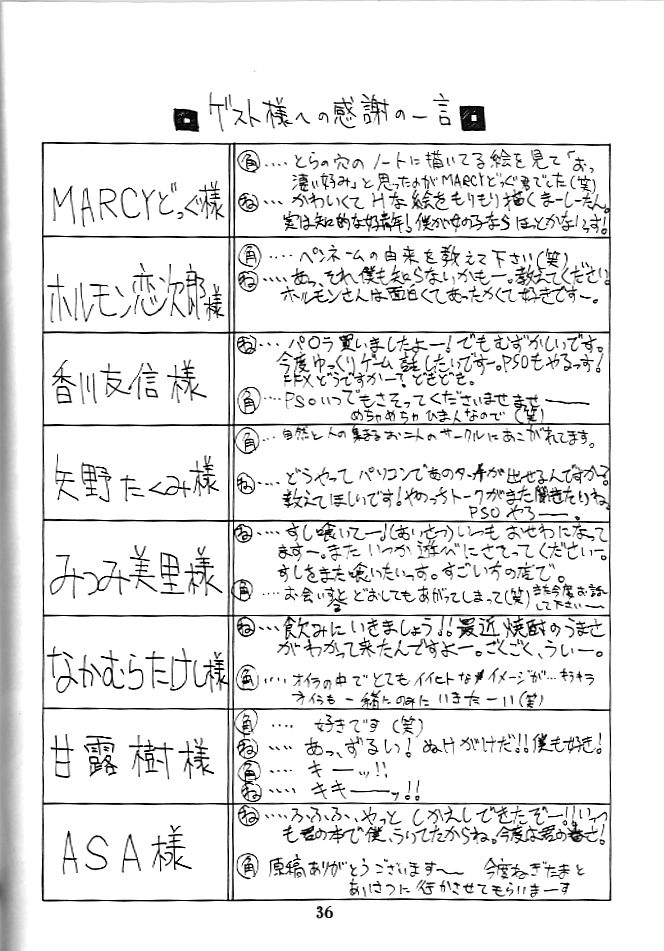 ゲスト様への感謝の一言
MARCYどっぐ様
角....とらの穴のノートに描いてる絵を見て「おっ
凄い好み」と思ったのがMARCYどっぐ君でした(笑)
ね...かわいくてHな絵をもりもり描くまーしーたん。
実は知的な好青年!僕が女の子ならほっとかないっす!
ホルモン恋次郎様
角....ペンネームの由来を教えて下さい(笑)
ね....あっ、それ僕も知らないかもー。教えてください。
ホルモンさんは面白くてあったかくて好きですー。
香川友信様
ね....パロラ買いましたよー!でもむずかしいです。
今度ゆっくりゲーム話したいですー。PSOもやるっす!
FFXどうですかー?ども。
角...PSOいつでもさそってくださいませませ───
めちゃめちゃひまんなので(笑)
矢野たくみ様
角...自然と人の集まるお二人のサークルにあこがれてます。
ね....どうやってパソコンであのタッチが出せるんですか?
教えてほしいです!やのっちトークがまた聞きたいね。
PSOやろ──。
みつみ美里様
ね....すし喰いてー!(あいさつ)いつもおせわになって
ますー。またいつか遊びにさそってくださいー。
すしをまた喰いたいっす。すごい方の店で。
角...お会いすると どおしてもあがってしまって(笑)また今度お話
して下さい〜
なかむらたけし様
ね....飲みにいきましょう!!最近焼酎のうまさ
がわかって来たんですよー。ごくごく、うぃー。
角....オイラの中でとてもイイヒトなイメージが...キラキラ
オイラも一緒にのみにいきたーい(笑)
甘露樹様
角.... 好きです(笑)
ね.... あっ、ずるい!ぬけがけだ!!僕も好き!
角.... キーッ!!
ね.... キキーッ!!
ASA様
ね....ふふふ、やっとしかえしできたぞー!!いっつ
も君の本で僕、うけてたからね。今度は君の番さ!
角 原稿ありがとうございます〜 今度ねぎたまと
あいさつに行かさせてもらいまーす
36